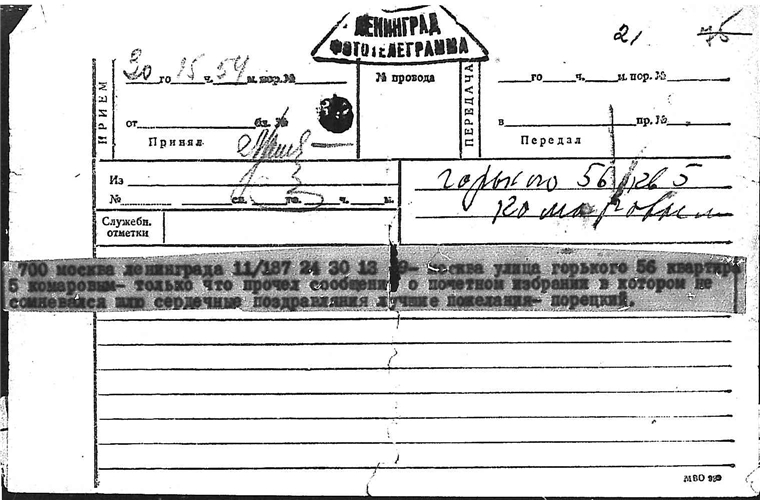 ЛЕНИНГРАД
ФОТОТЕЛЕГРАММА
21 75
ПРИЕМ
30 го 15 ч. 54 м. пор. №
от бл. №
Принял
№ провода
ПЕРЕДАЧА
го ч. м. пор. №
в пр. №
Передал
Из
№ сл. го ч. м.
Служебн.
отметки
горького 56 кв 5
Комаровым
700 москва ленинграда 11/187 24 30 13 москва улица горького 56 квартира
5 комаровым- только что прочел сообщени о почетном избрании в котором не
сомневался шлю сердечные поздравления лучшие пожелания- порецкий.
МВО